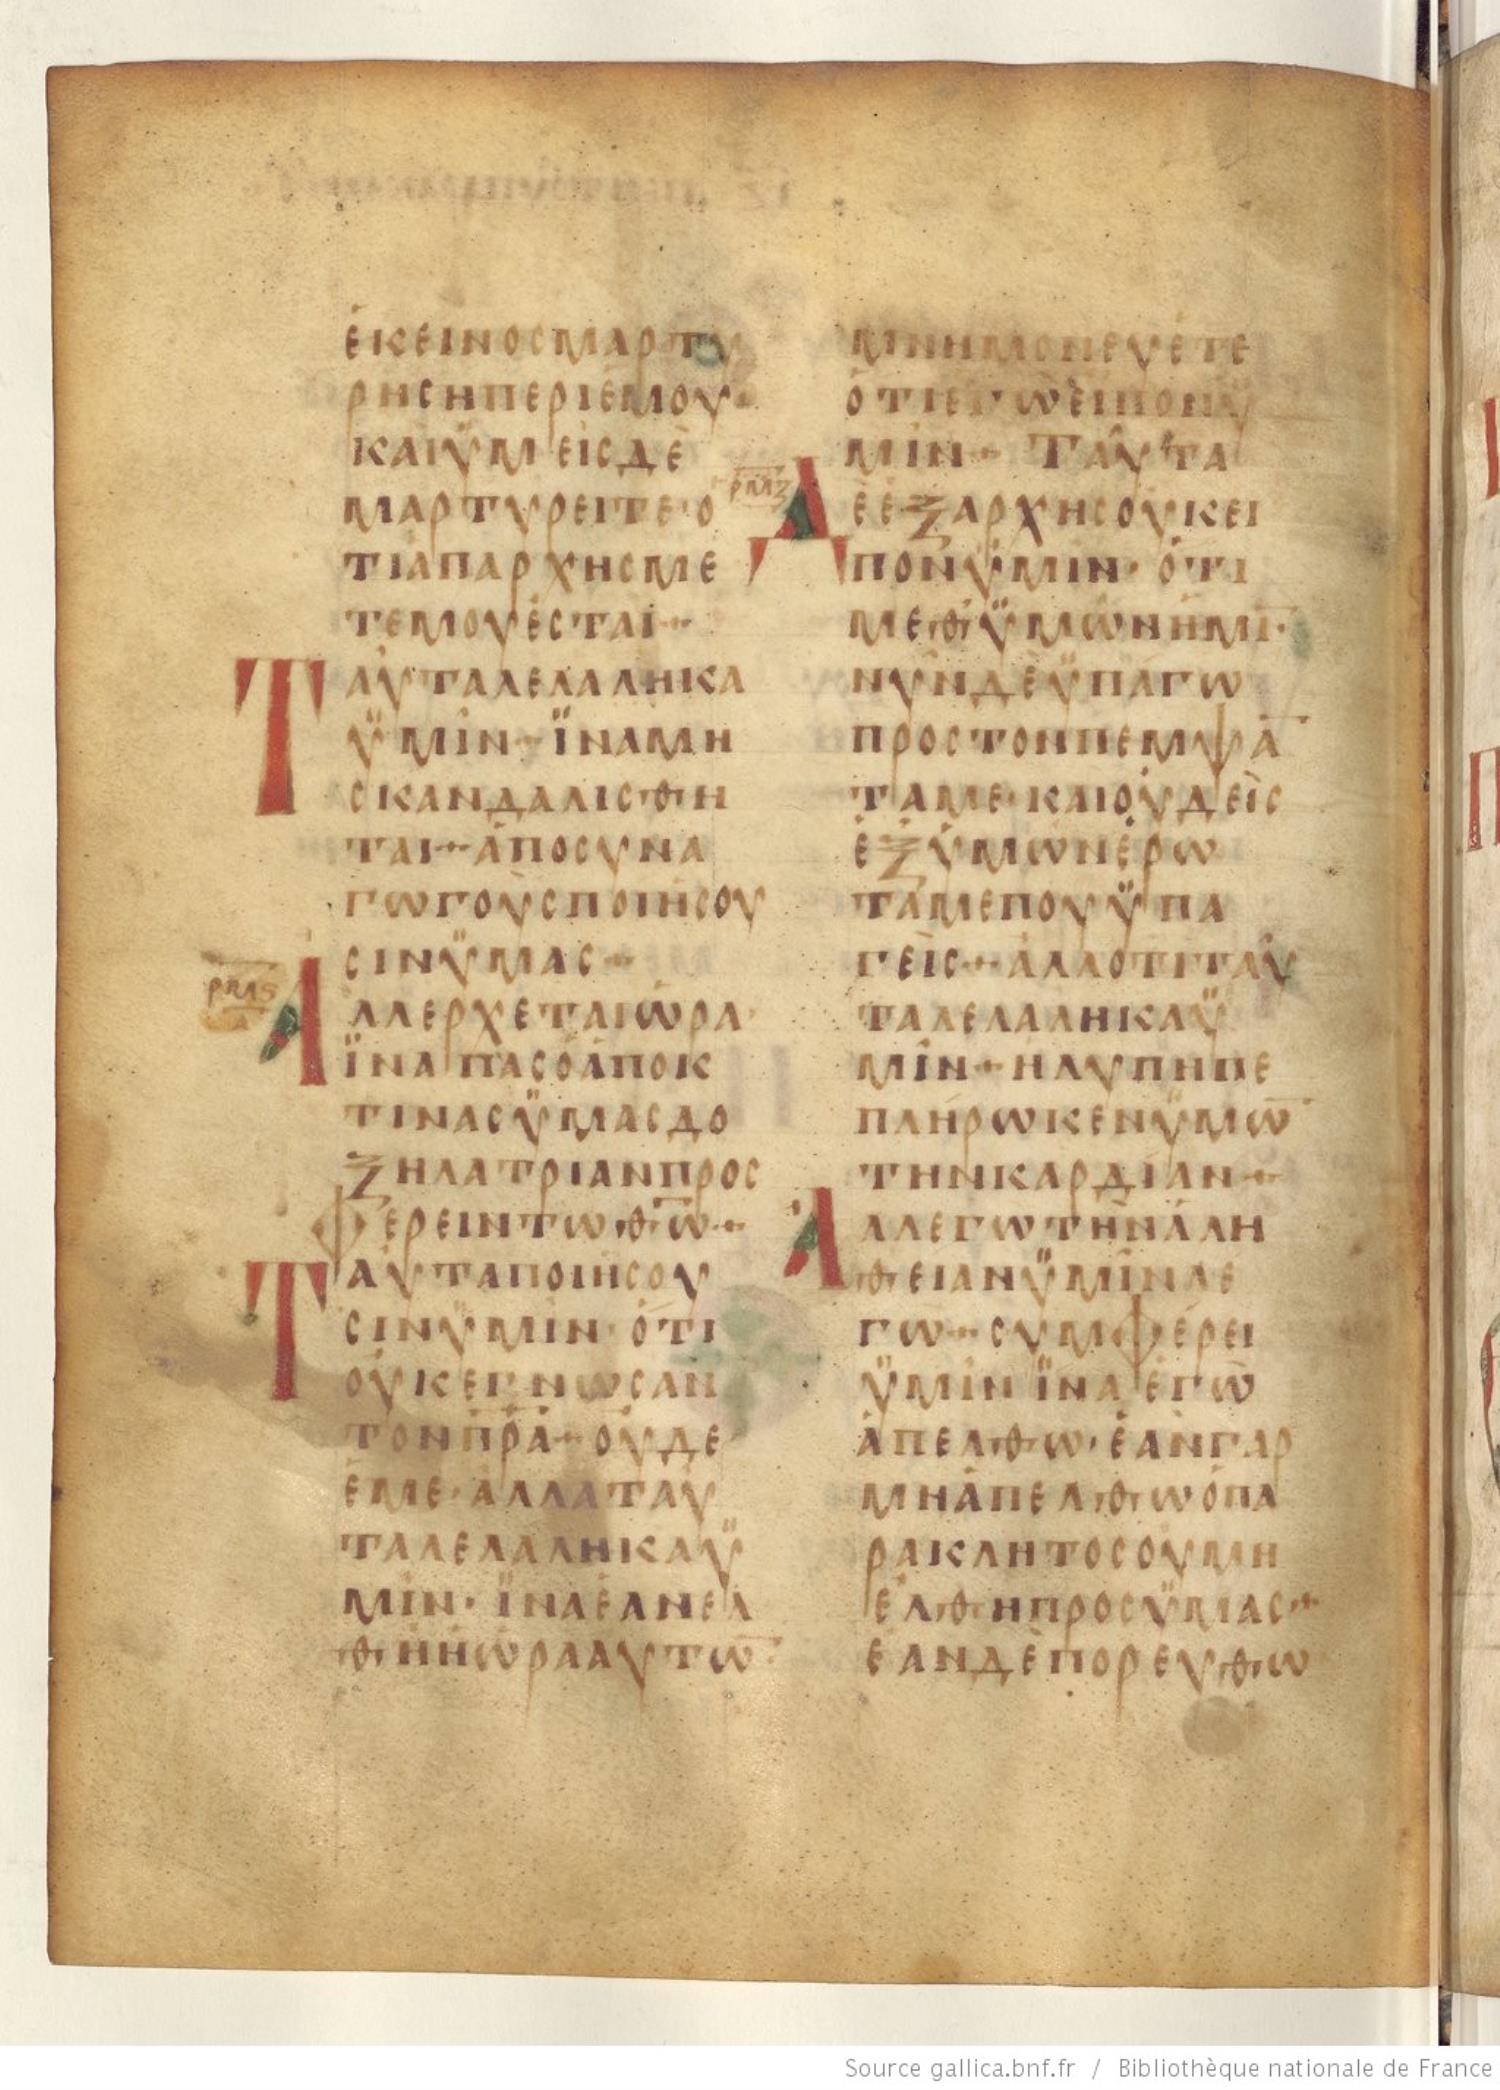 ἐκεινοσμαρτυ
ρησηπεριἐμοῦ·
καὶϋμεῖσδὲ
μαρτυρειτε·ὁ
τιἀπαρχησμε
τεμουἐσταὶ·
Ταῦταλελαληκα
ϋμῖν·ϊναμη
σκανδαλισθη
ται·ἀποσυνα
γωγοὺσποιήσου
σινϋμασ·
ρμϛ
Ἀλλερχεταιὥρα·
ϊναπασὁἀποκ
τινασϋμασδο
ξηλατριανπροσ
φερειντωθω̅·
Ταῦταποιήσου
σινϋμῖν·ὅτι
οὐκεγνωσαν
τονπ̅ρ̅α̅·οὐδε
ἐμε·ἀλλαταῦ
ταλελαληκαϋ
μῖν·ϊναἐανελ
θηἡὥρααυτω̅
μνημονευετε
ὁτιεγὼεἶπονϋ
μῖν· Ταῦτα
ρμζ
Δὲἐξαρχησοὐκεῖ
πονϋμῖν·ὅτι
μεθϋμῶνήμη̅·
νῦνδὲϋπάγω
προστονπεμψα̅
ταμε·καιοὐδεὶσ
ἐξϋμῶνἐρω
ταμεποῦϋπα
γεῖσ·ἀλλοτιταῦ
ταλελαληκαϋ
μῖν·ηλυπηπε
πλήρωκενϋμω̅
τηνκαρδίαν·
Ἀλλεγωτὴνἀλη
θειανϋμῖνλε
γω·συμφέρει
ϋμῖνϊναἐγὼ
ἀπελθω·ἐὰνγαρ
μηἀπελθωὁπα
ρακλητοσοὐμη
ἐλθηπροσϋμασ·
ἐανδὲπορευθω
Source gallica.bnf.fr / Bibliothèque nationale de France